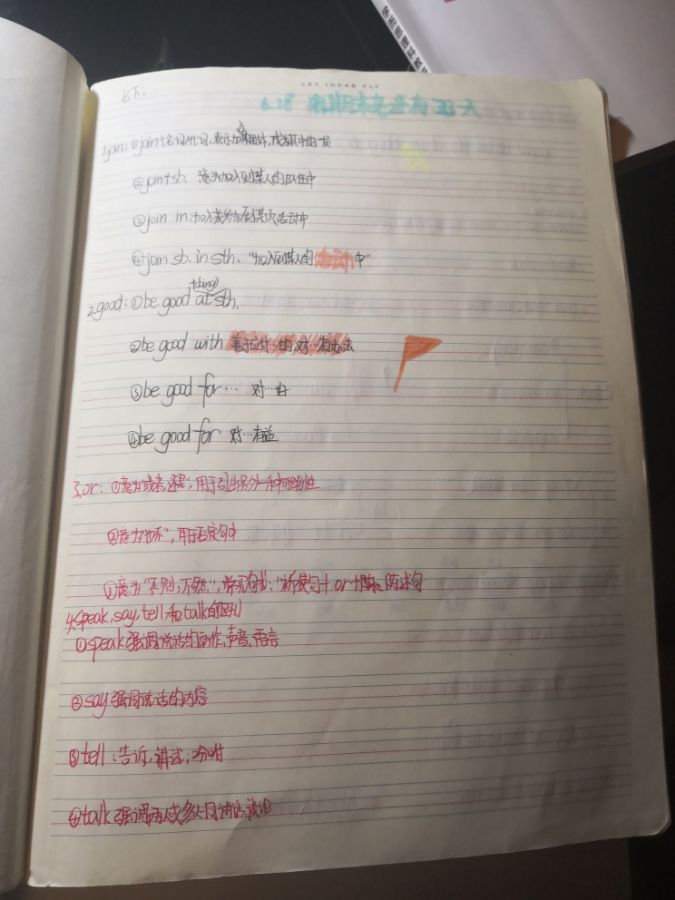 七下:
LET DREAM FLY
6.28 离期末考还有 天
1.join: ①join+名词/代词,表示加入某团体,成为其中的一员
②join+sb. 意为加入到某人的队伍中
③join in:加入或参加到某项活动中
④join sb. in sth. "加入到某人的活动中"
(doing)
2.good: ①be good at sth.
②be good with 善于应付…的 对…有办法
③be good for… 对…
④be good for 对…有益
3.or: ①意为"或者,还是",用于引出另外一种可能性
②意为"也不",用于否定句中
③意为"否则,不然",常见句型:"祈使句+or+ 陈述句
4.speak,say,tell和talk的区别
①speak强调说话的动作,声音,语言
②say强调说话的内容
③tell:告诉,讲述;吩咐
④talk强调两人或多人间讲话,谈论